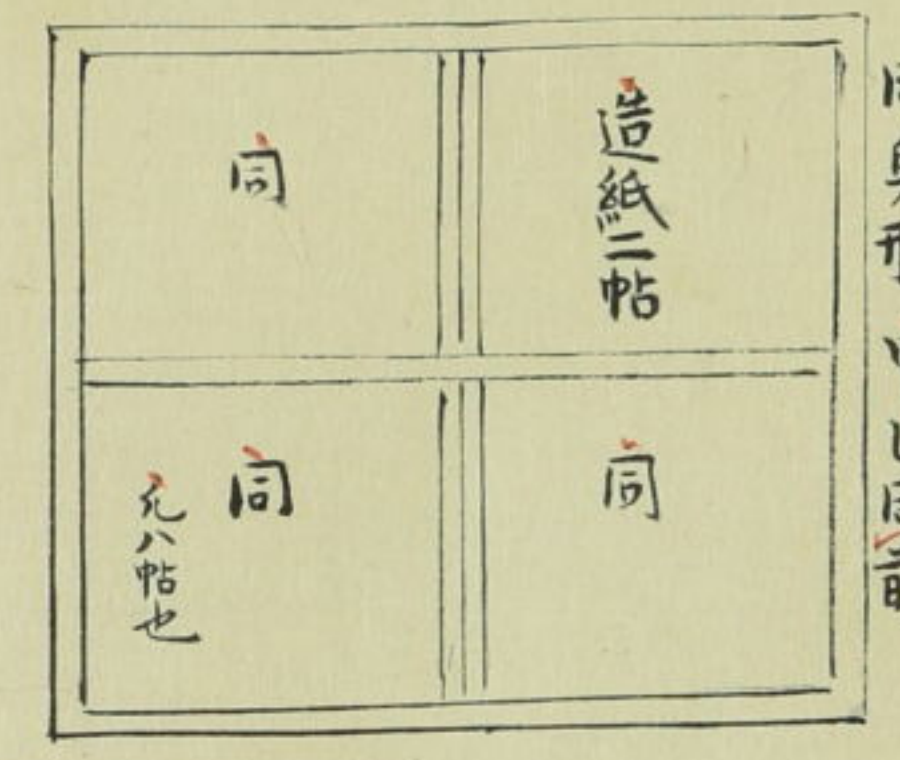 造紙二帖
同
同
同
凡八帖也